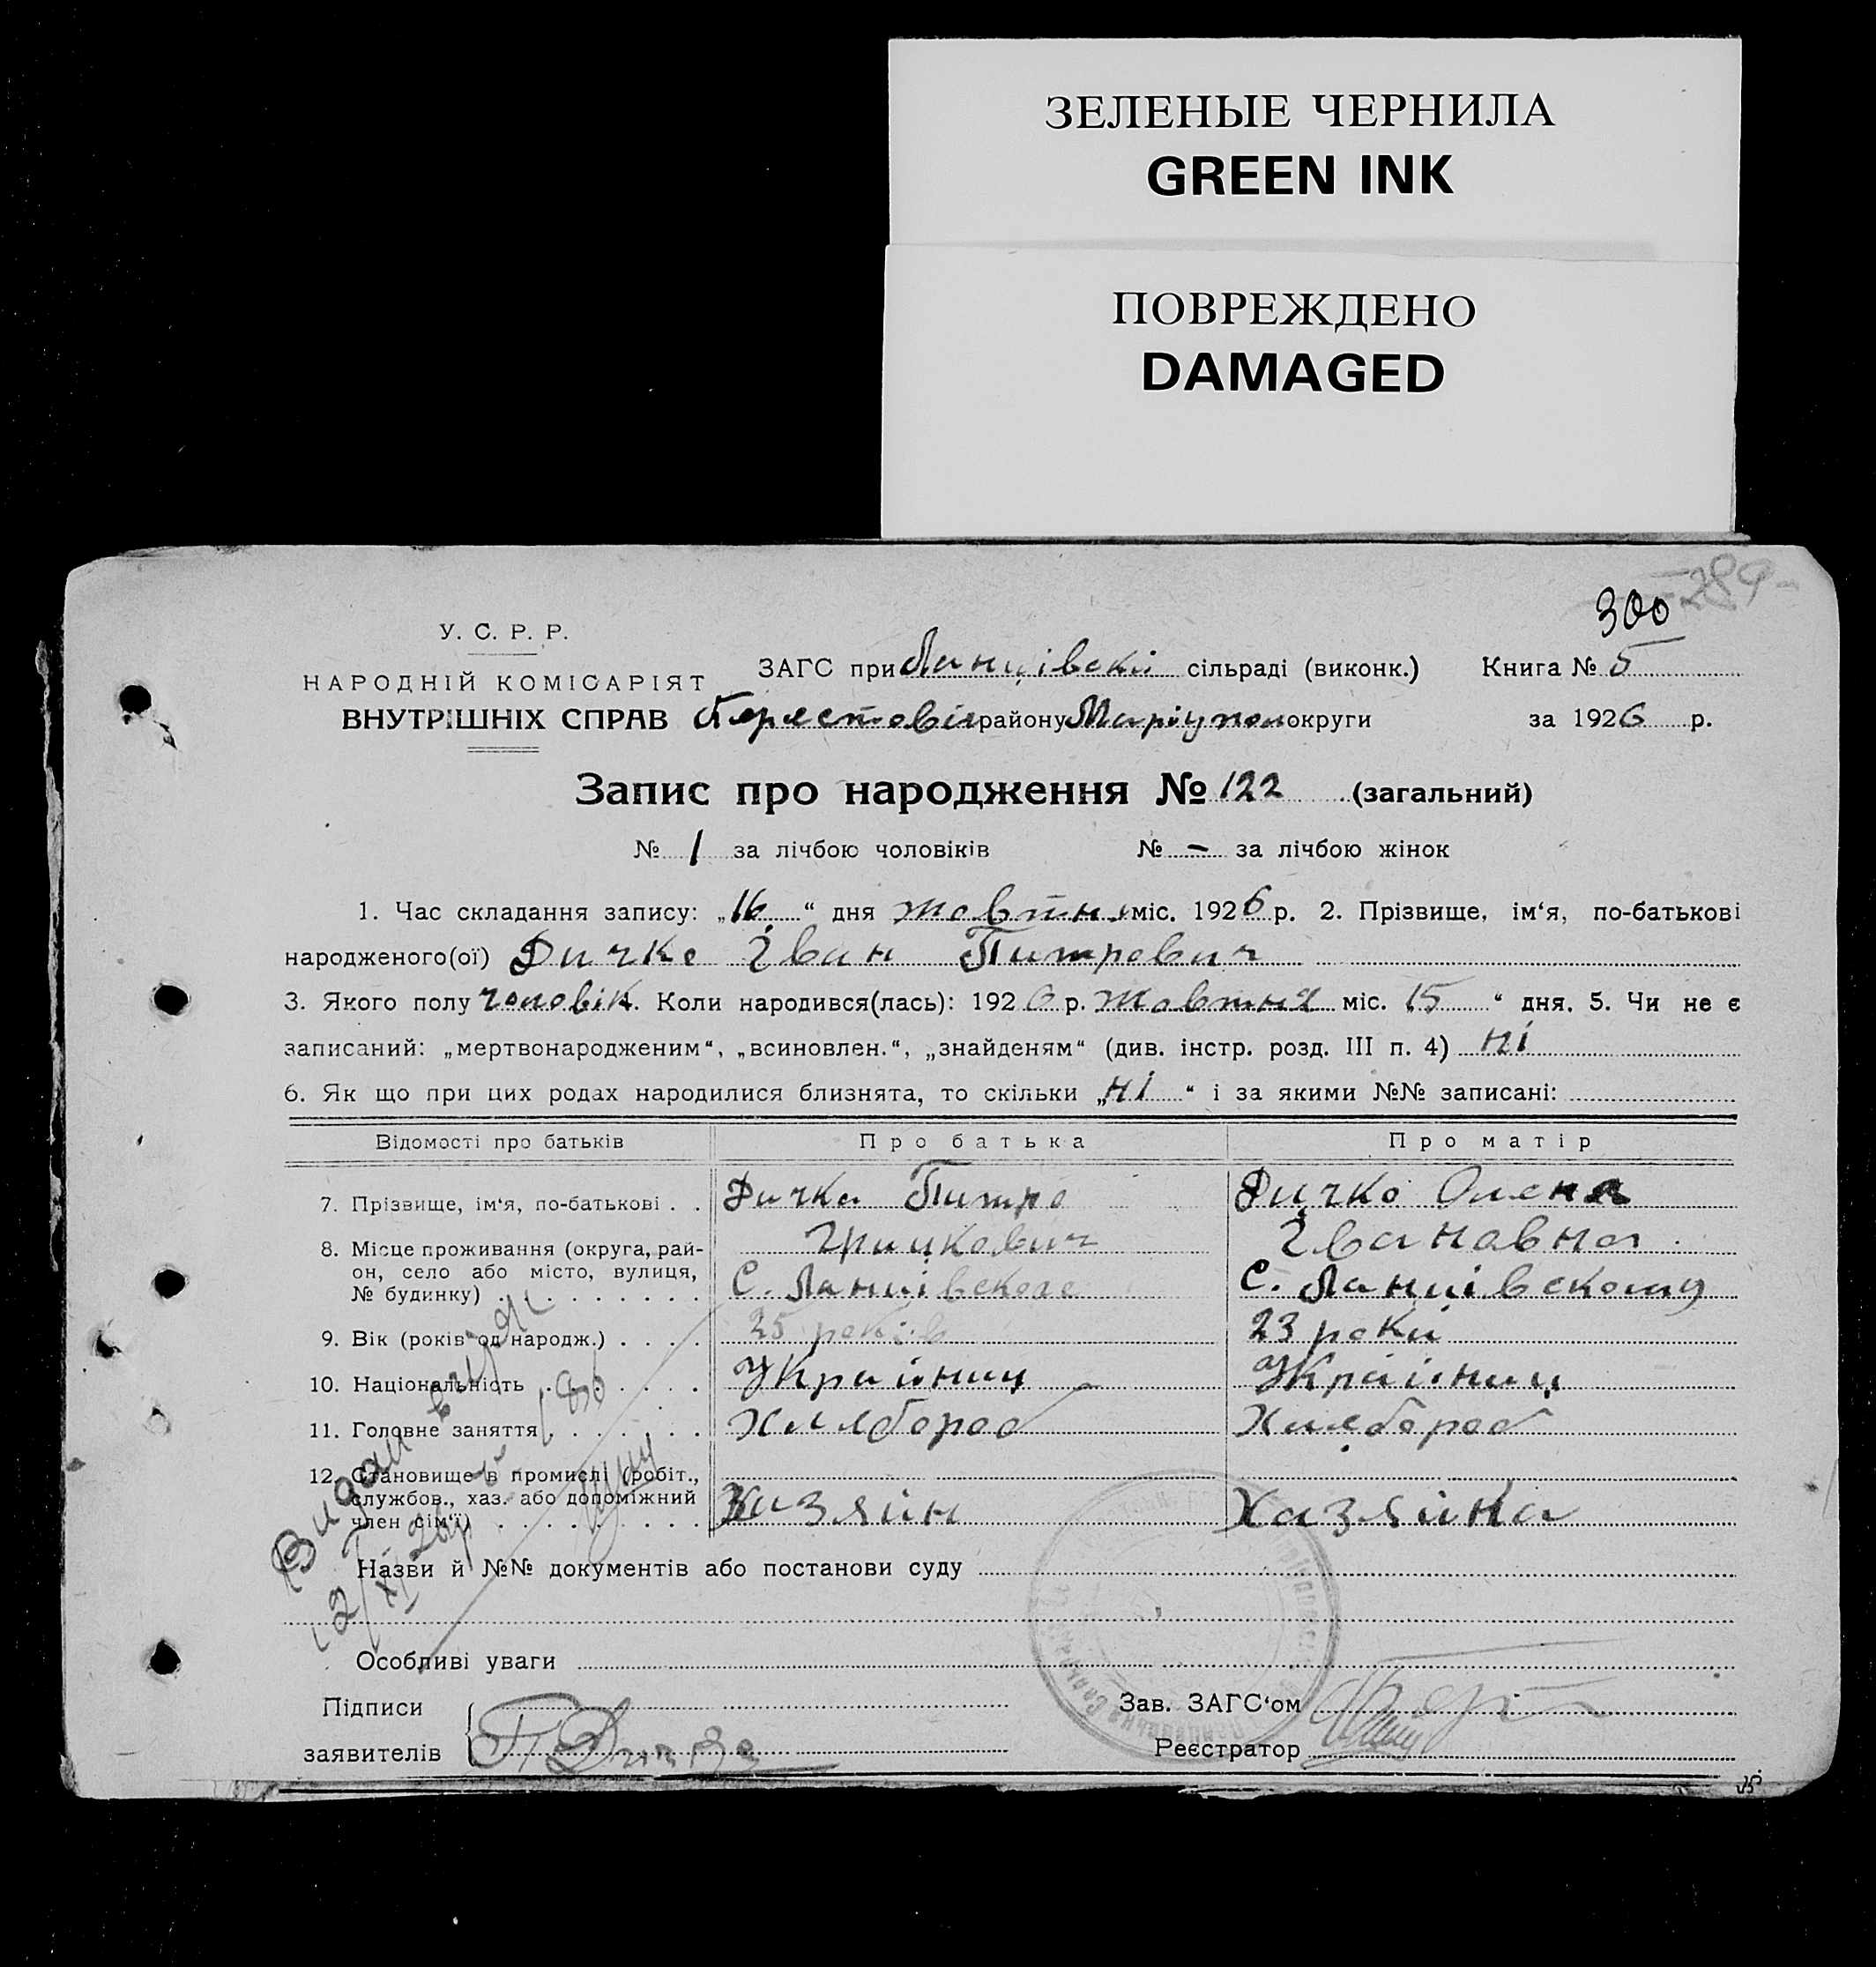 ЗЕЛЕНЫЕ ЧЕРНИЛА
GREEN INK
ПОВРЕЖДЕНО
DAMAGED
-289-
300
У. С. Р. Р.
НАРОДНІЙ КОМІСАРІЯТ
ВНУТРІШНІХ СПРАВ
ЗАГС при Ланцівскій сільраді (виконк.) Книга № 5
району Маріупол округи за 1926 р.
Запис про народження № 122 (загальний)
№ 1 за лічбою чоловіків № - за лічбою жінок
1. Час складання запису: „16“ дня жовтня міс. 1926 р. 2. Прізвище, ім‘я, по-батькові
народженого(ої) Дичко Іван Питрович
3. Якого полу чоловік. Коли народився(лась): 1926 р. жовтня міс. 15 “ дня. 5. Чи не є
записаний: „мертвонародженим“, „всиновлен.“, „знайденям“ (див. інстр. розд. III п. 4) ні
6. Як що при цих родах народилися близнята, то скільки „ні“ і за якими №№ записані:
Відомості про батьків Про батька Про матір
7. Прізвище, ім‘я, по-батькові . . Дичко Питро Дичко Олена
Грицкович Іванавна
8. Місце проживання (округа, рай-
он, село або місто, вулиця,
№ будинку) С. Ланцівскоге С. Ланцівскому
9. Вік (років од народж.) 25 років 23 роки
10. Національність Украйниц Украйниц
11. Головне заняття Хилбороб Хилбороб
12. Становище в промислі (робіт.,
службов., хаз. або допоміжний
член сім‘ї) Хазяйн Хазяйка
Назви й №№ документів або постанови суду
Видан
Особливі уваги
Підписи
заявителів
П Дичко
Зав. ЗАГС‘ом
Реєстратор